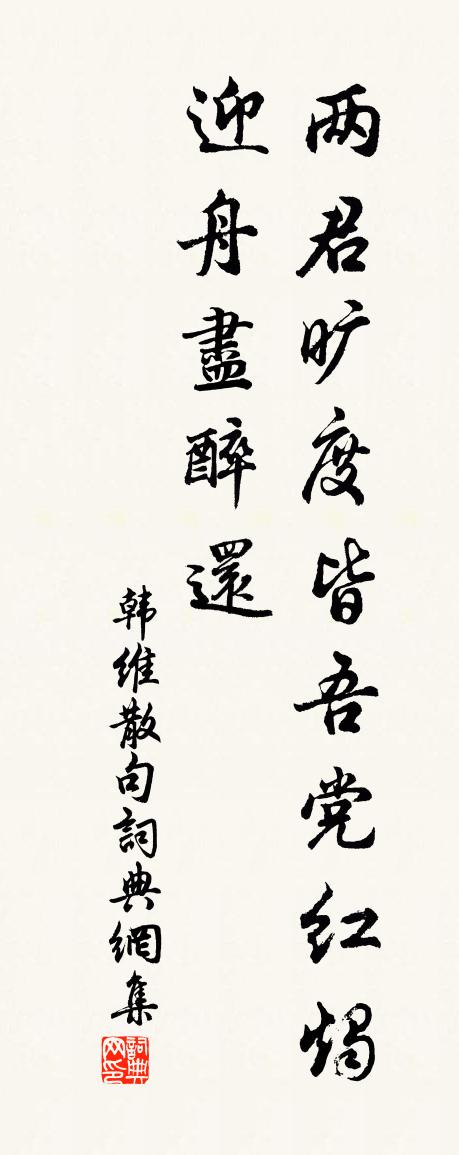 两君旷度皆吾党红燭
迎舟盡醉還
韩維散句詞典網集
詞典网印